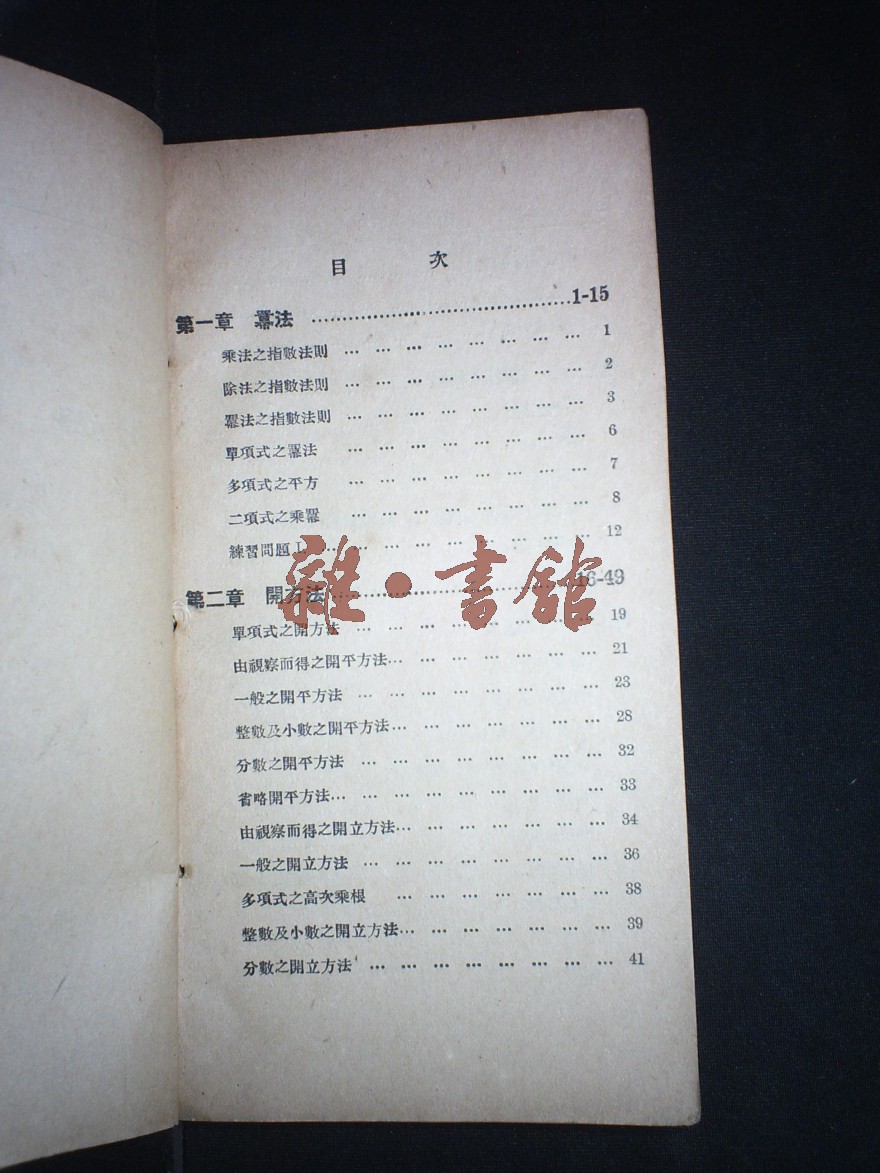 目 次
第一章 羃法 ……………………………………1-15
乘法之指數法則 … … … … … … … … 1
除法之指數法則 … … … … … … … … 2
羃法之指數法則 … … … … … … … … 3
單項式之羃法 … … … … … … … … 6
多項式之平方 … … … … … … … … 7
二項式之乘羃 … … … … … … … … 8
練習問題 I. … … … … … … … … 12
第二章 開方法 ……………………………………16-49
單項式之開方法 … … … … … … … … 19
由視察而得之開平方法… … … … … … … 21
一般之開平方法 … … … … … … … … 23
整數及小數之開平方法… … … … … … … 28
分數之開平方法 … … … … … … … … 32
省略開平方法… … … … … … … … … 33
由視察而得之開立方法… … … … … … … 34
一般之開立方法 … … … … … … … … 36
多項式之高次乘根 … … … … … … … 38
整數及小數之開立方法… … … … … … … 39
分數之開立方法 … … … … … … … … 41
雜·書館